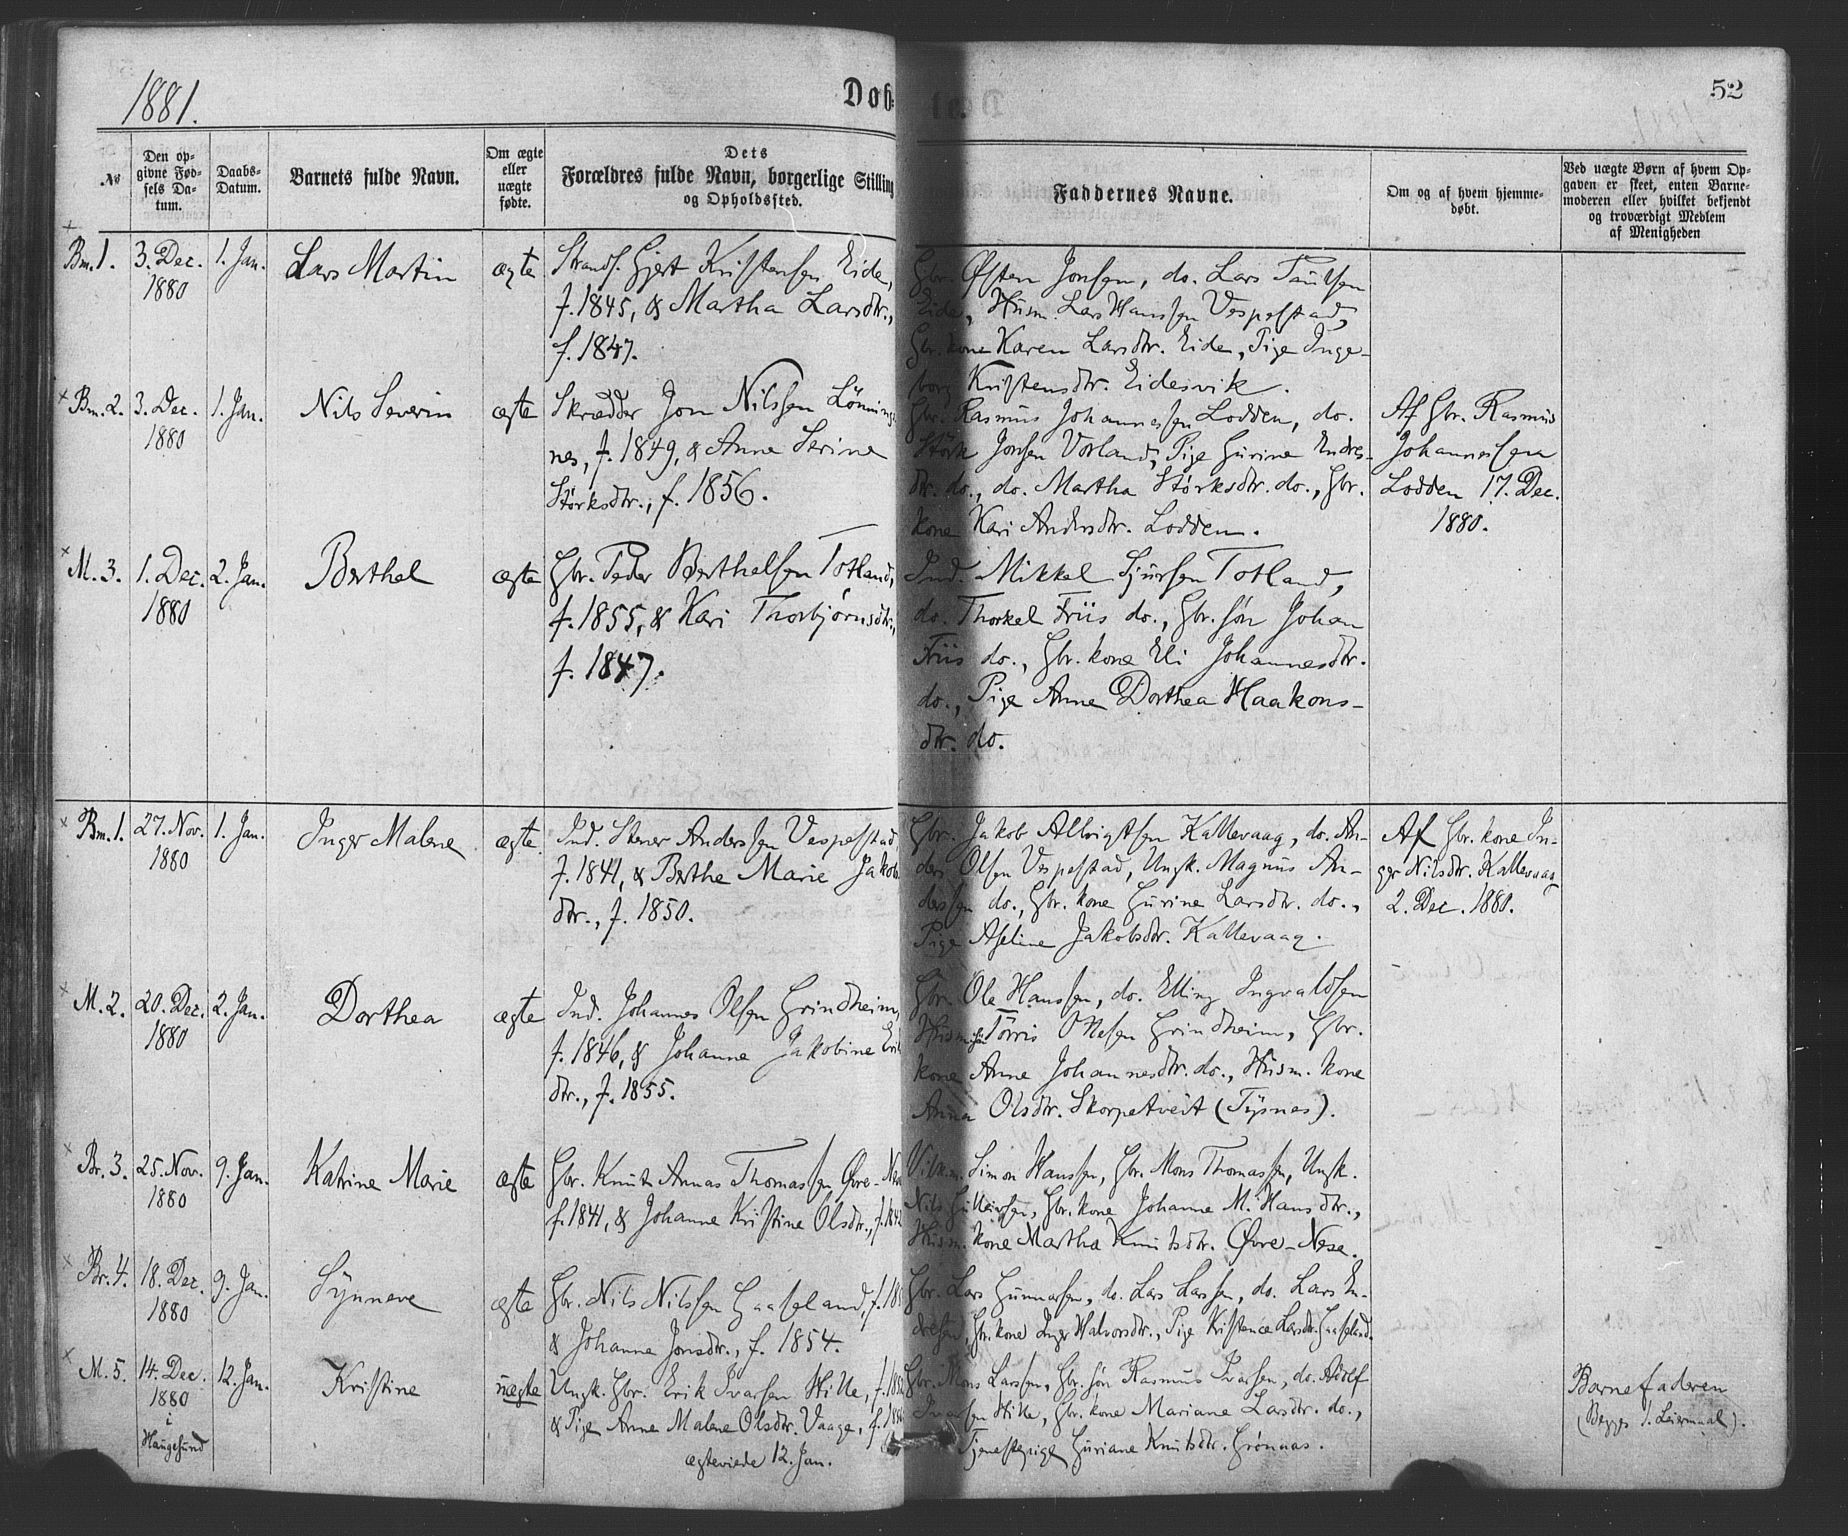 1881.
Døb=
52
№
Den op-
givne Fød-
sels Da-
tum.
Daabs-
Datum.
Barnets fulde Navn.
Om ægte
eller
uægte
fødte.
Dets
Forældres fulde Navn, borgerlige Stilling
og Opholdssted.
Faddernes Navne.
Om og af hvem hjemme-
døbt.
Ved uægte Børn af hvem Op-
gaven er skeet, enten Barne-
moderen eller hvilket bekjendt
og troværdigt Medlem
af Menigheden
Bm. 1.
3. Dec.
1880
1. Jan.
Lars Martin
ægte
Strands. Gjert Kristensen Eide,
f. 1845, & Martha Larsdtr.,
f. 1847.
Gbr. Østen Jonsen, do. Lars
Eide, Husm. Lars Hanssen Vespestad,
Gbr. kone Karen Larsdtr. Eide, Pige Inge-
borg Kristensdtr. Eidesvik.
Bm. 2.
3. Dec.
1880
1. Jan.
Nils Severin
ægte
Skrædder Jon Nilssen Lönning
nes, f. 1849, & Anne Serine
Störksdtr., f. 1856.
Gbr. Rasmus Johannessen Lodden, do.
Störk Jonsen Vorland, Pige Gurine Endres-
dtr. do., do. Martha Störksdtr. do., Gbr.
kone Kari Andersdtr. Lodden.
Af Gbr. Rasmus
Johannessen
Lodden 17. Dec.
1880.
M. 3.
1. Dec.
1880
2. Jan.
Berthel
ægte
Gbr. Peder Berthelsen Totland,
f. 1855, & Kari Thorbjörnsdtr.,
f. 1847.
Ind. Mikkel Sjursen Totland,
do. Thorkel Friis do., Gbr. søn Johan
Friis do., Gbr. kone Eli Johannesdtr.
do., Pige Anne Dorthea Haakons-
dtr. do.
Bm. 1.
27. Nov.
1880
1. Jan.
Inger Malene
ægte
Ind. Stener Anderssen Vespestad,
f. 1841, & Berthe Marie Jakobs
dtr., f. 1850.
Gbr. Jakob Albrigtsen Kallevaag, do. An-
ders Olsen Vespestad, Ungk. Magnus An-
dersen do., Gbr. kone Gurine Larsdtr. do.,
Pige Aseline Jakobsdtr. Kallevaag.
Af Gbr. kone In-
ger Nilsdtr. Kallevaag
2. Dec. 1880.
M. 2.
20. Dec.
1880
2. Jan.
Dorthea
ægte
Ind. Johannes Olsen Grindheim,
f. 1846, & Johanne Jakobine Erik
dtr., f. 1855.
Gbr. Ole Hanssen, do. Elling Ingvaldsen
Husm. søn Törris Ottesen Grindheim, Gbr.
kone Anne Johannesdtr. do., Husm. kone
Anna Olsdtr. Skorpetveit (Tysnes).
Br. 3.
25. Nov.
1880
9. Jan.
Katrine Marie
ægte
Gbr. Knut Annas Thomassen Øvre-Nese
f. 1841, & Johanne Kristine Olsdtr., f. 1842
Simon Hanssen, Gbr. Mons Thomassen, Ungk.
Nils Gulleivsen, Gbr. kone Johanne M. Hansdtr.,
Husm. kone Martha Knutsdtr. Øvre-Nese.
Br. 4.
18. Dec.
1880
9. Jan.
Synneve
ægte
Gbr. Nils Nilssen Gaaseland, f. 185
& Johanne Jonsdtr., f. 1854.
Gbr. Lars Gunnarsen, do. Lars Larssen, do. Lars En-
dresen, Gbr. kone Inger Halvorsdtr., Pige Kristence Larsdtr. Gaaseland.
M. 5.
14. Dec.
1880
i
Haugesund
12. Jan.
Kristine
uægte
Ungk. Gbr. Erik Ivarsen Hille, f. 1852
& Pige Anne Malene Olsdtr. Vaage, f. 185
ægteviede 12. Jan.
Gbr. Mons Larssen, Gbr. søn Rasmus Ivarsen, do. Adolf
Ivarsen Hille, Gbr. kone Mariane Larsdtr. do.,
Tjenestepige Guriane Knutsdtr. Grönnaas.
Barnefaderen
(Begges 1. Leiermaal).